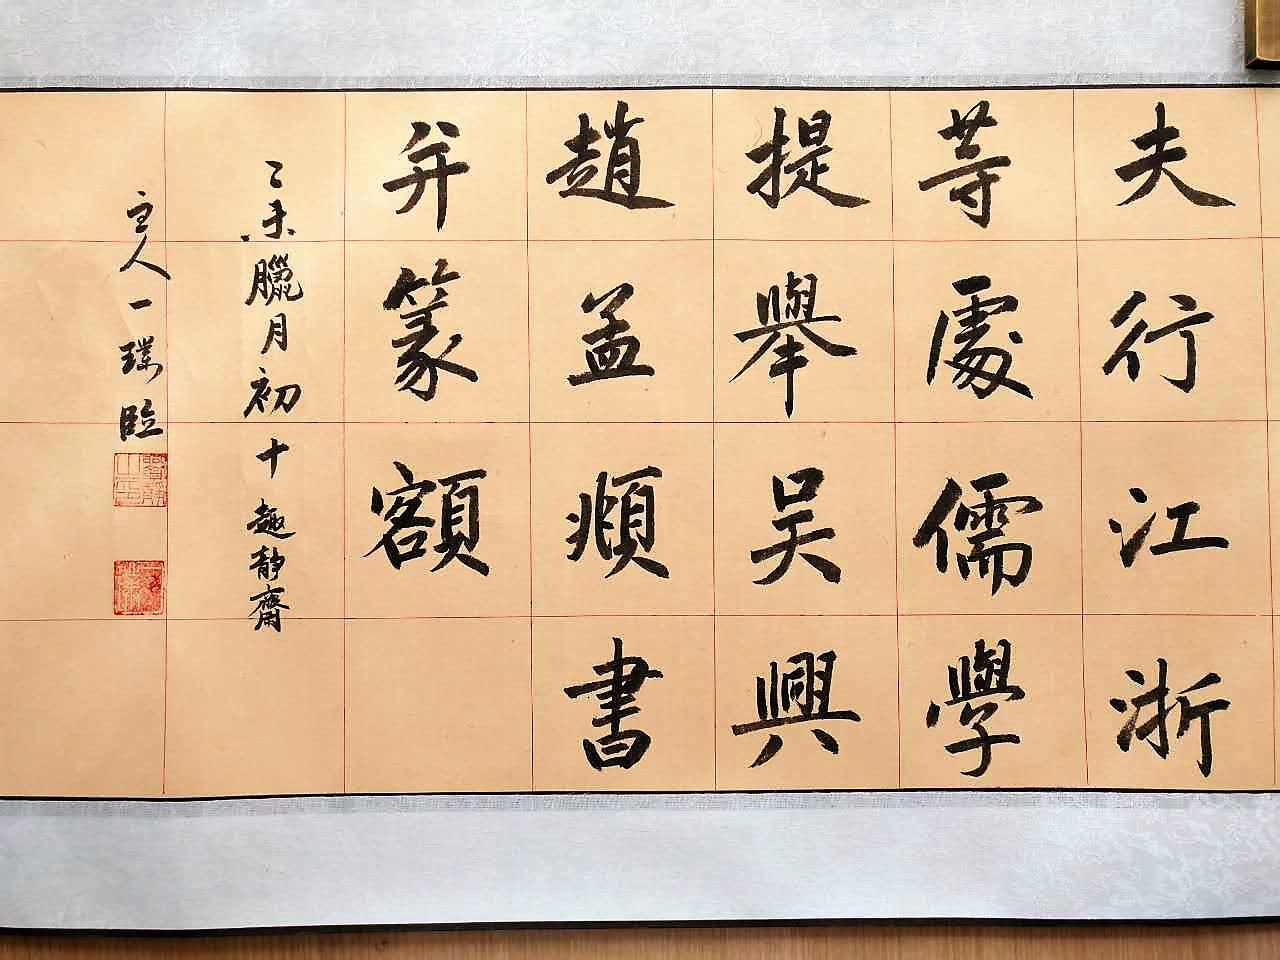 夫行江浙
等處儒學
提舉吴興
趙孟頫書
并篆額
乙未臘月初十趣靜齋
主人一璞臨